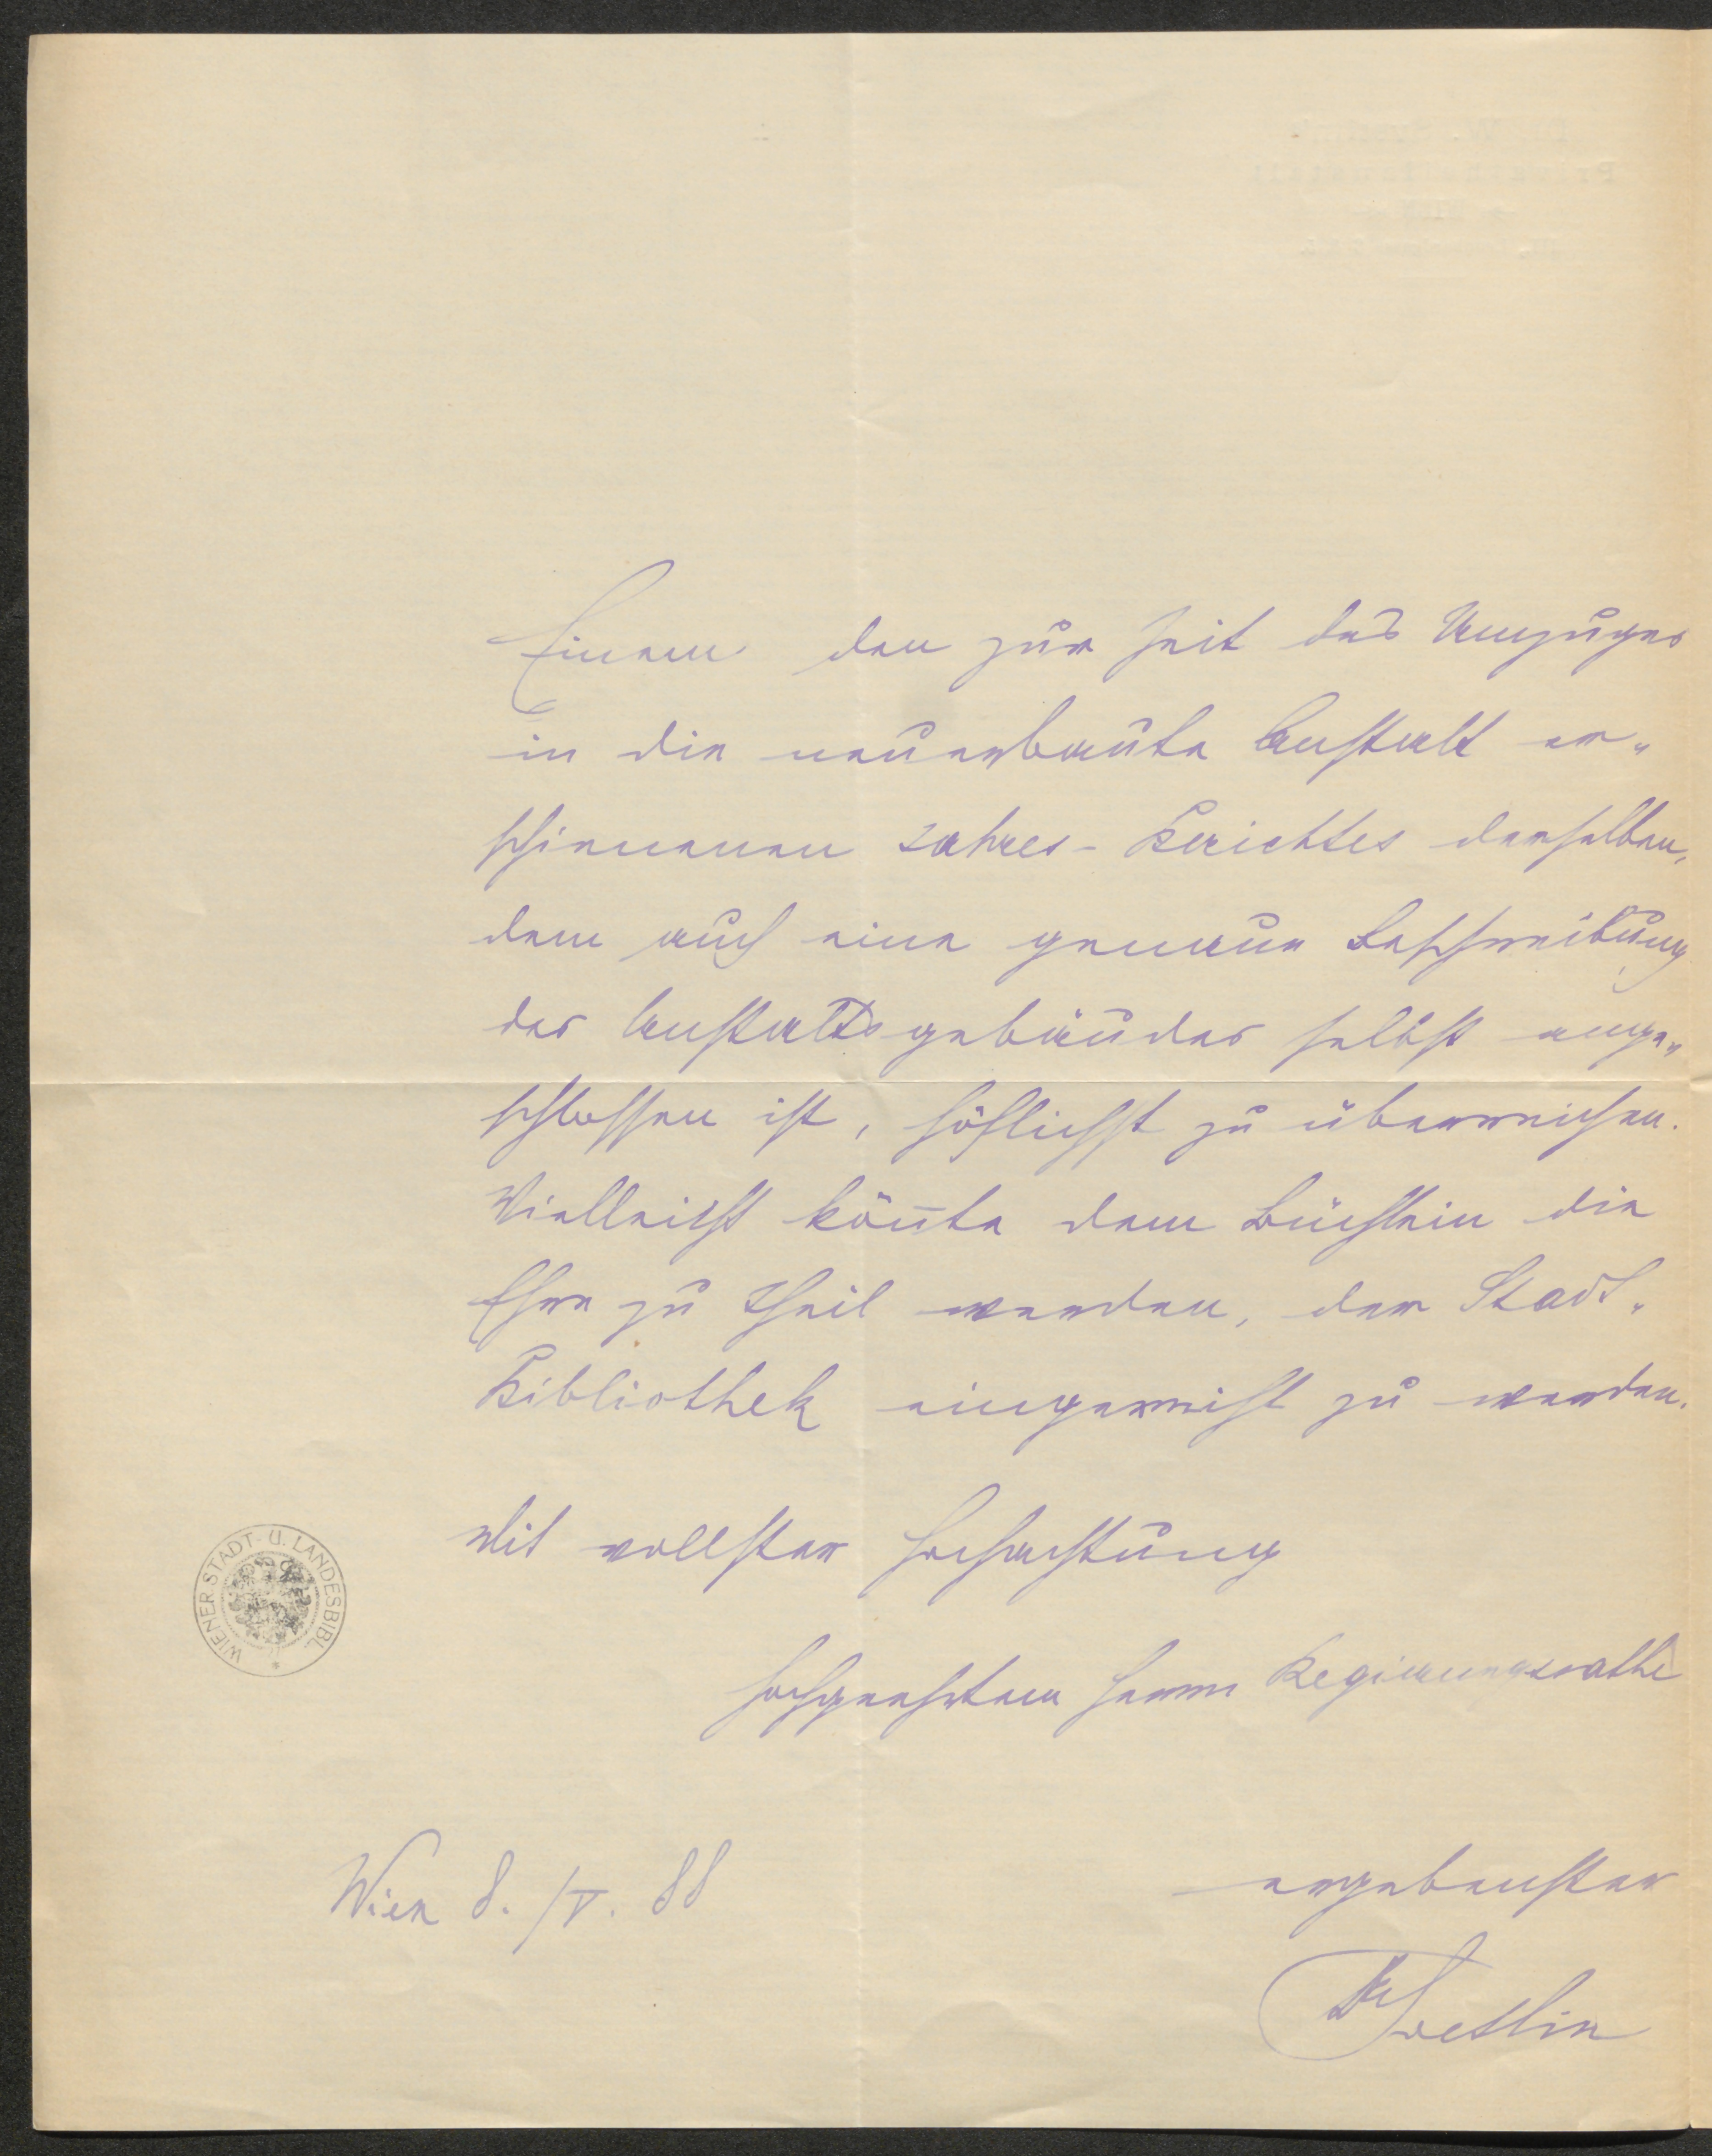 Einem den zur Zeit des Umzuges
in die neuerbaute Anstalt er„
schienenen Jahres-Berichtes derselben,
dem auch eine genaue Beschreibung
des Anstaltsgebäudes selbst ange„
schlossen ist, höflichst zu überreichen.
Vielleicht kön̄te dem Büchlein die
Ehre zu Theil werden, der Stadt„
Bibliothek eingereiht zu werden.
Mit vollster Hochachtung
hochgeehrtem Herrn Regierungsrathe
Wien 8./V. 88
ergebenster
Dr Svetlin
WIENER STADT- U. LANDESBIBL. *